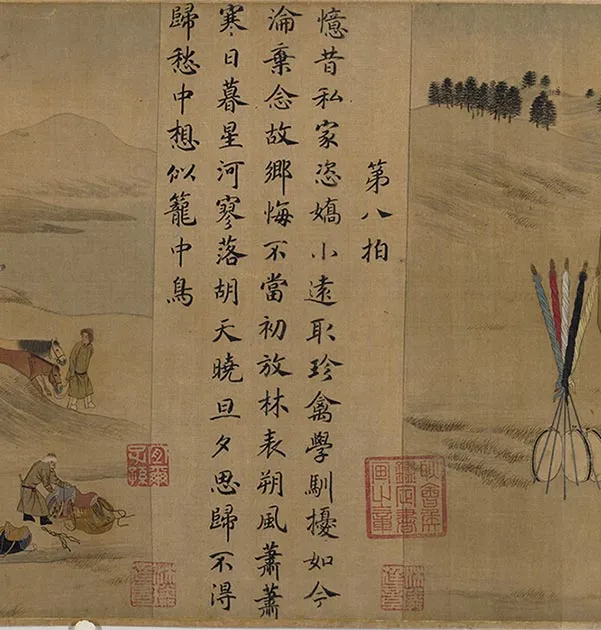 第八拍
憶昔私家恣嬌小遠取珍禽學馴擾如今
淪棄念故鄉悔不當初放林表朔風蕭蕭
寒日暮星河寥落胡天曉旦夕思歸不得
歸愁中想似籠中鳥
耿會侯
鑑定書
畫之章
宜爾
子孫